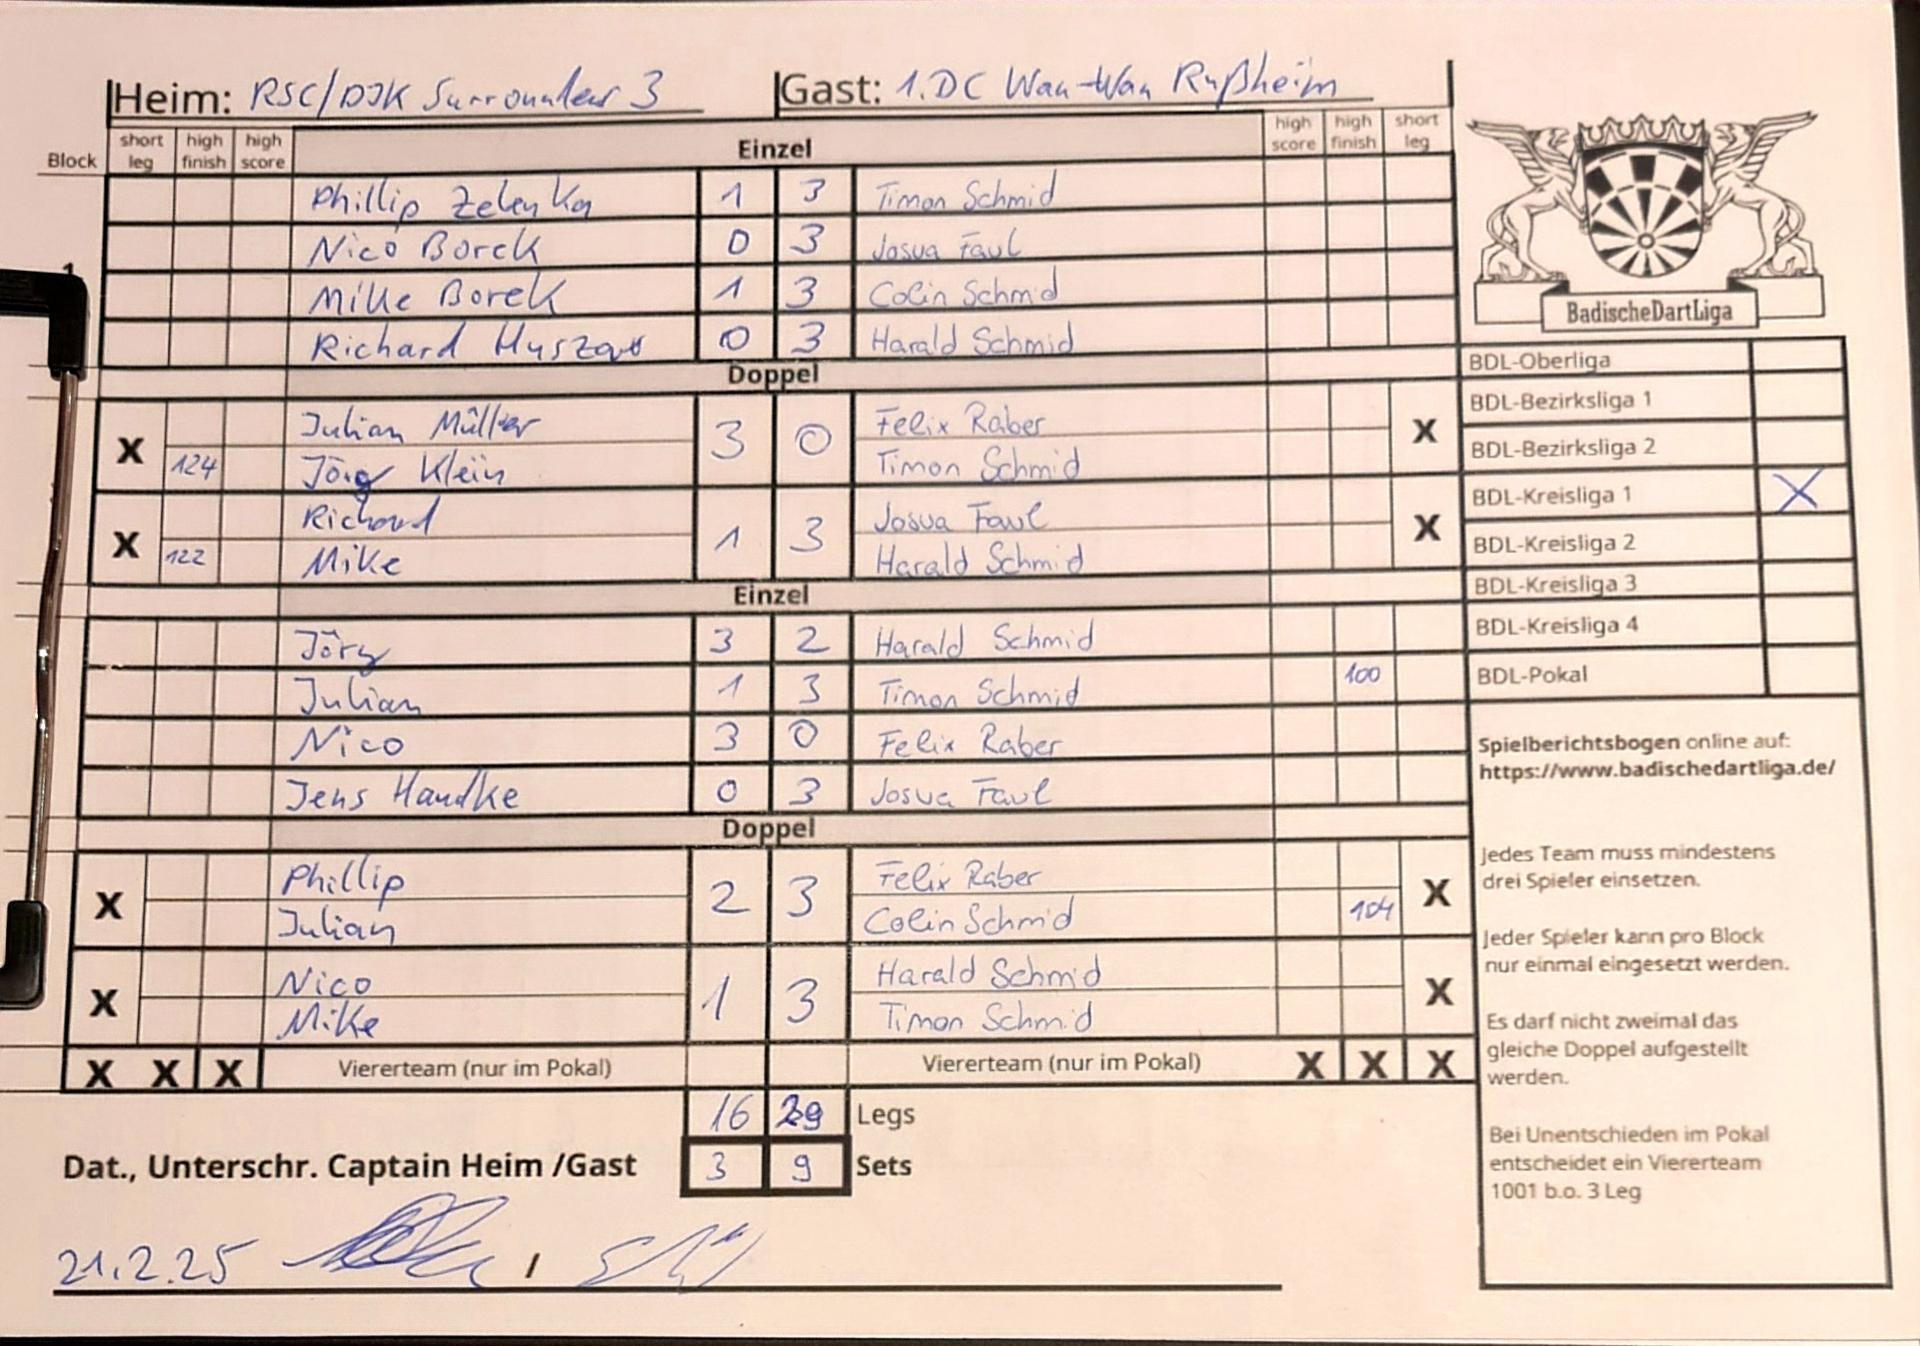 Heim: RSC/DJK Surrounder 3 Gast: 1.DC Wau-Wau Rußheim
Block short leg high finish high score Einzel high score high finish short leg
Phillip Zelenka 1 3 Timon Schmid
Nico Borek 0 3 Josua Faul
1
Mike Borek 1 3 Colin Schmid
Richard Huszar 0 3 Harald Schmid
Doppel
Julian Müller 3 0 Felix Raber
X 124 Jörg Klein Timon Schmid X
Richard 1 3 Josua Faul
X 122 Mike Harald Schmid X
Einzel
Jörg 3 2 Harald Schmid
Julian 1 3 Timon Schmid 100
Nico 3 0 Felix Raber
Jens Handke 0 3 Josua Faul
Doppel
Phillip 2 3 Felix Raber
X Julian Colin Schmid 104 X
Nico 1 3 Harald Schmid
X Mike Timon Schmid X
X X X Viererteam (nur im Pokal) Viererteam (nur im Pokal) X X X
16 29 Legs
Dat., Unterschr. Captain Heim /Gast 3 9 Sets
21.2.25 /
BadischeDartLiga
BDL-Oberliga
BDL-Bezirksliga 1
BDL-Bezirksliga 2
BDL-Kreisliga 1 X
BDL-Kreisliga 2
BDL-Kreisliga 3
BDL-Kreisliga 4
BDL-Pokal
Spielberichtsbogen online auf:
https://www.badischedartliga.de/
Jedes Team muss mindestens
drei Spieler einsetzen.
Jeder Spieler kann pro Block
nur einmal eingesetzt werden.
Es darf nicht zweimal das
gleiche Doppel aufgestellt
werden.
Bei Unentschieden im Pokal
entscheidet ein Viererteam
1001 b.o. 3 Leg